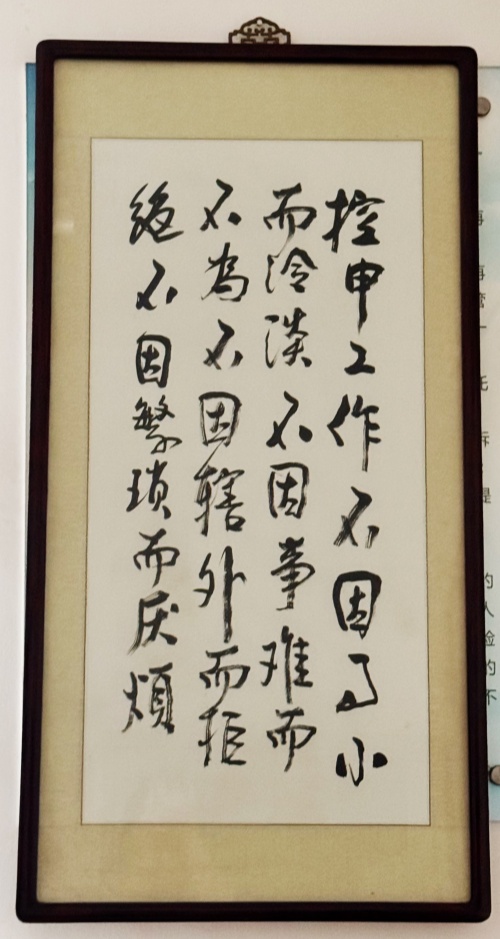 控申工作不因事小
而冷淡不因事难而
不為不因辖外而拒
绝不因繁琐而厌煩